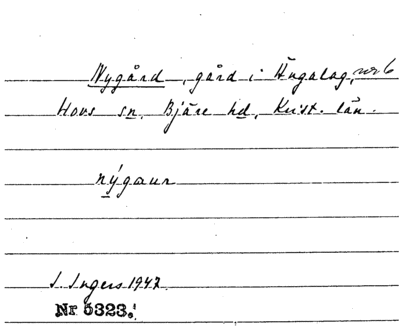 Nygård, gård i Ängalag, nr 6
Hovs sn. Bjäre hd, Krist. län.
nýgaur
I. Ingers 1947.
Nr 5323.